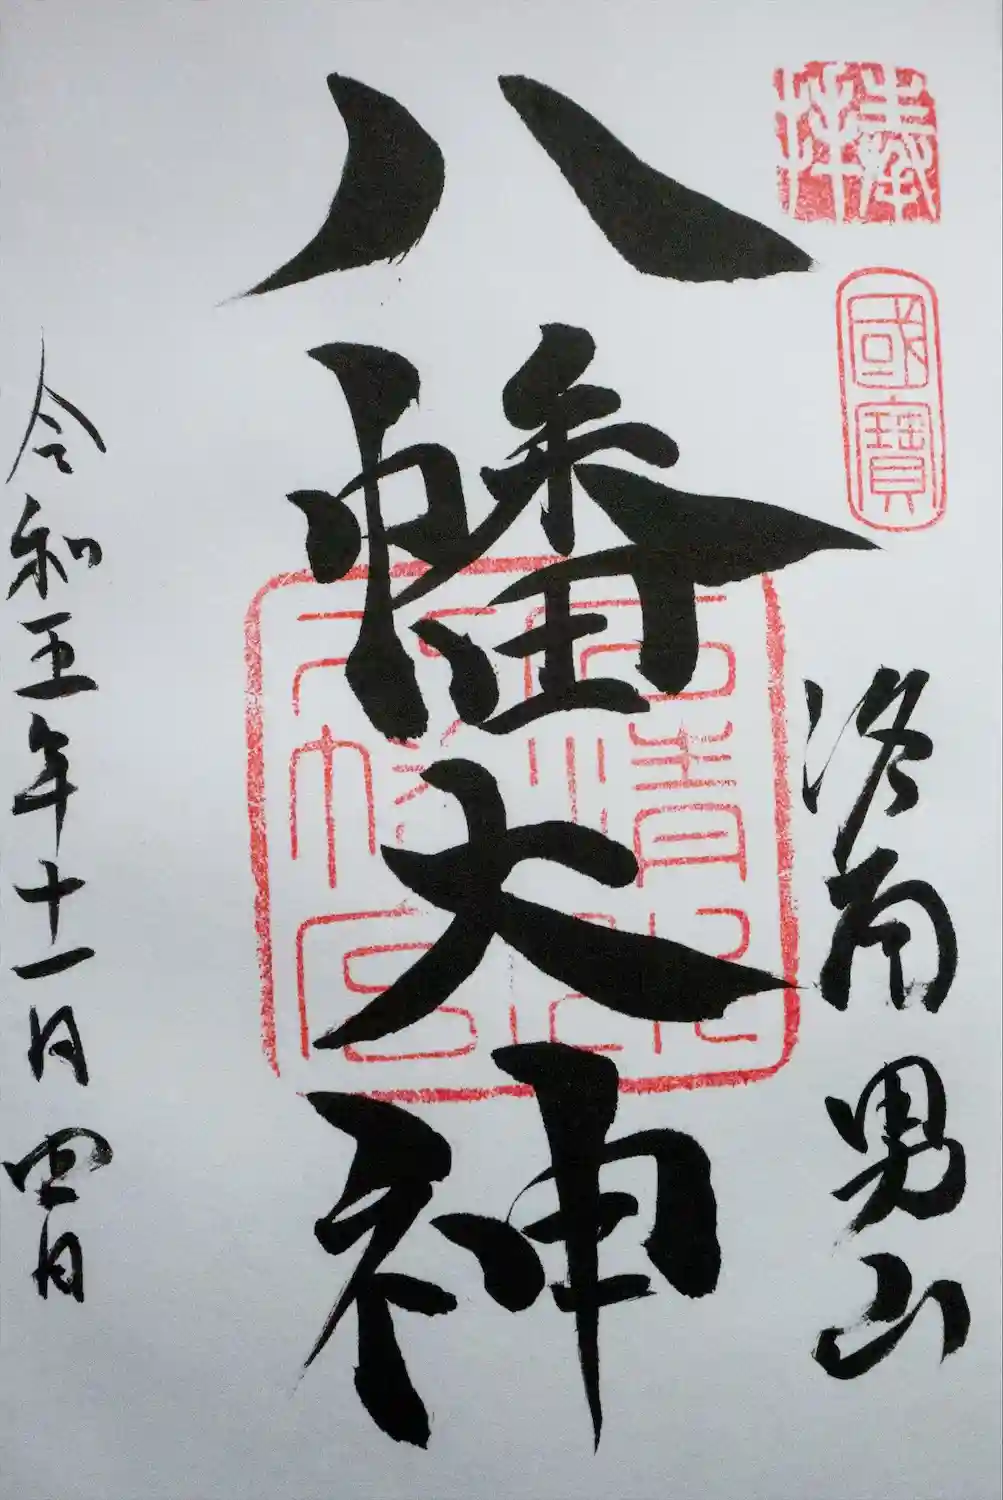 奉拝
國寶
洛南男山
八幡大神
石清水
八幡宮
令和五年十一月四日